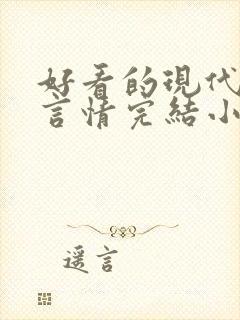 好看的現代
言情完結小
遥言